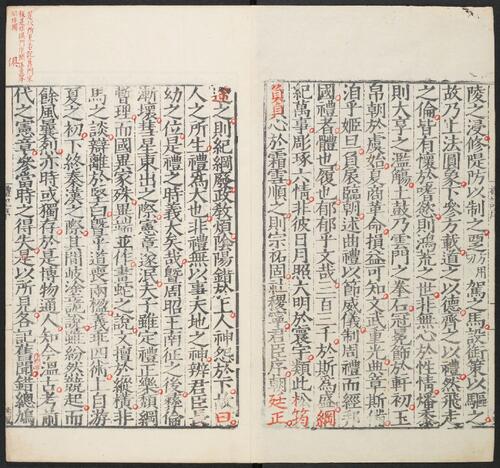 陵之浸脩隄防以制之覂駕之馬設銜策以驅之
故乃上法圓象下參方載道之以德齊之以禮然飛走
之倫皆有懷於嗜慾則鴻荒之世非無心於性情燔黍
則大享之濫觴土鼓乃雲門之拳石冠冕飾於軒初玉
帛朝於虞始夏商革命損益可知文武重光典章斯備
洎乎姬旦負扆臨朝述曲禮以節威儀制周禮而經邦
國禮者體也履也郁郁乎文哉三百三千於斯為盛綱
紀萬事彫琢六情非彼日月照大明於寰宇類此松筠
負貞心於霜雪順之則宗祏固社稷寧君臣序朝廷正
逆之則紀綱廢政教煩陰陽錯於上人神怨於下故曰
人之所生禮為大也非禮無以事天地之神辨君臣長
幼之位是禮之時義大矣哉暨周昭王南征之後彝倫
漸壞彗星東出之際憲章遂泯夫子雖定禮正樂頹綱
暫理而國異家殊異端並作畫蛇之說文擅於縱橫非
馬之談辯離於堅白暨乎道喪兩楹義乖四術上自游
夏之初下終秦漢之際其間岐塗詭說雖紛然競起而
餘風曩烈亦時或獨存於是博物通人知今溫古考前
代之憲章參當時之得失是以所見各記舊聞錯總鳩